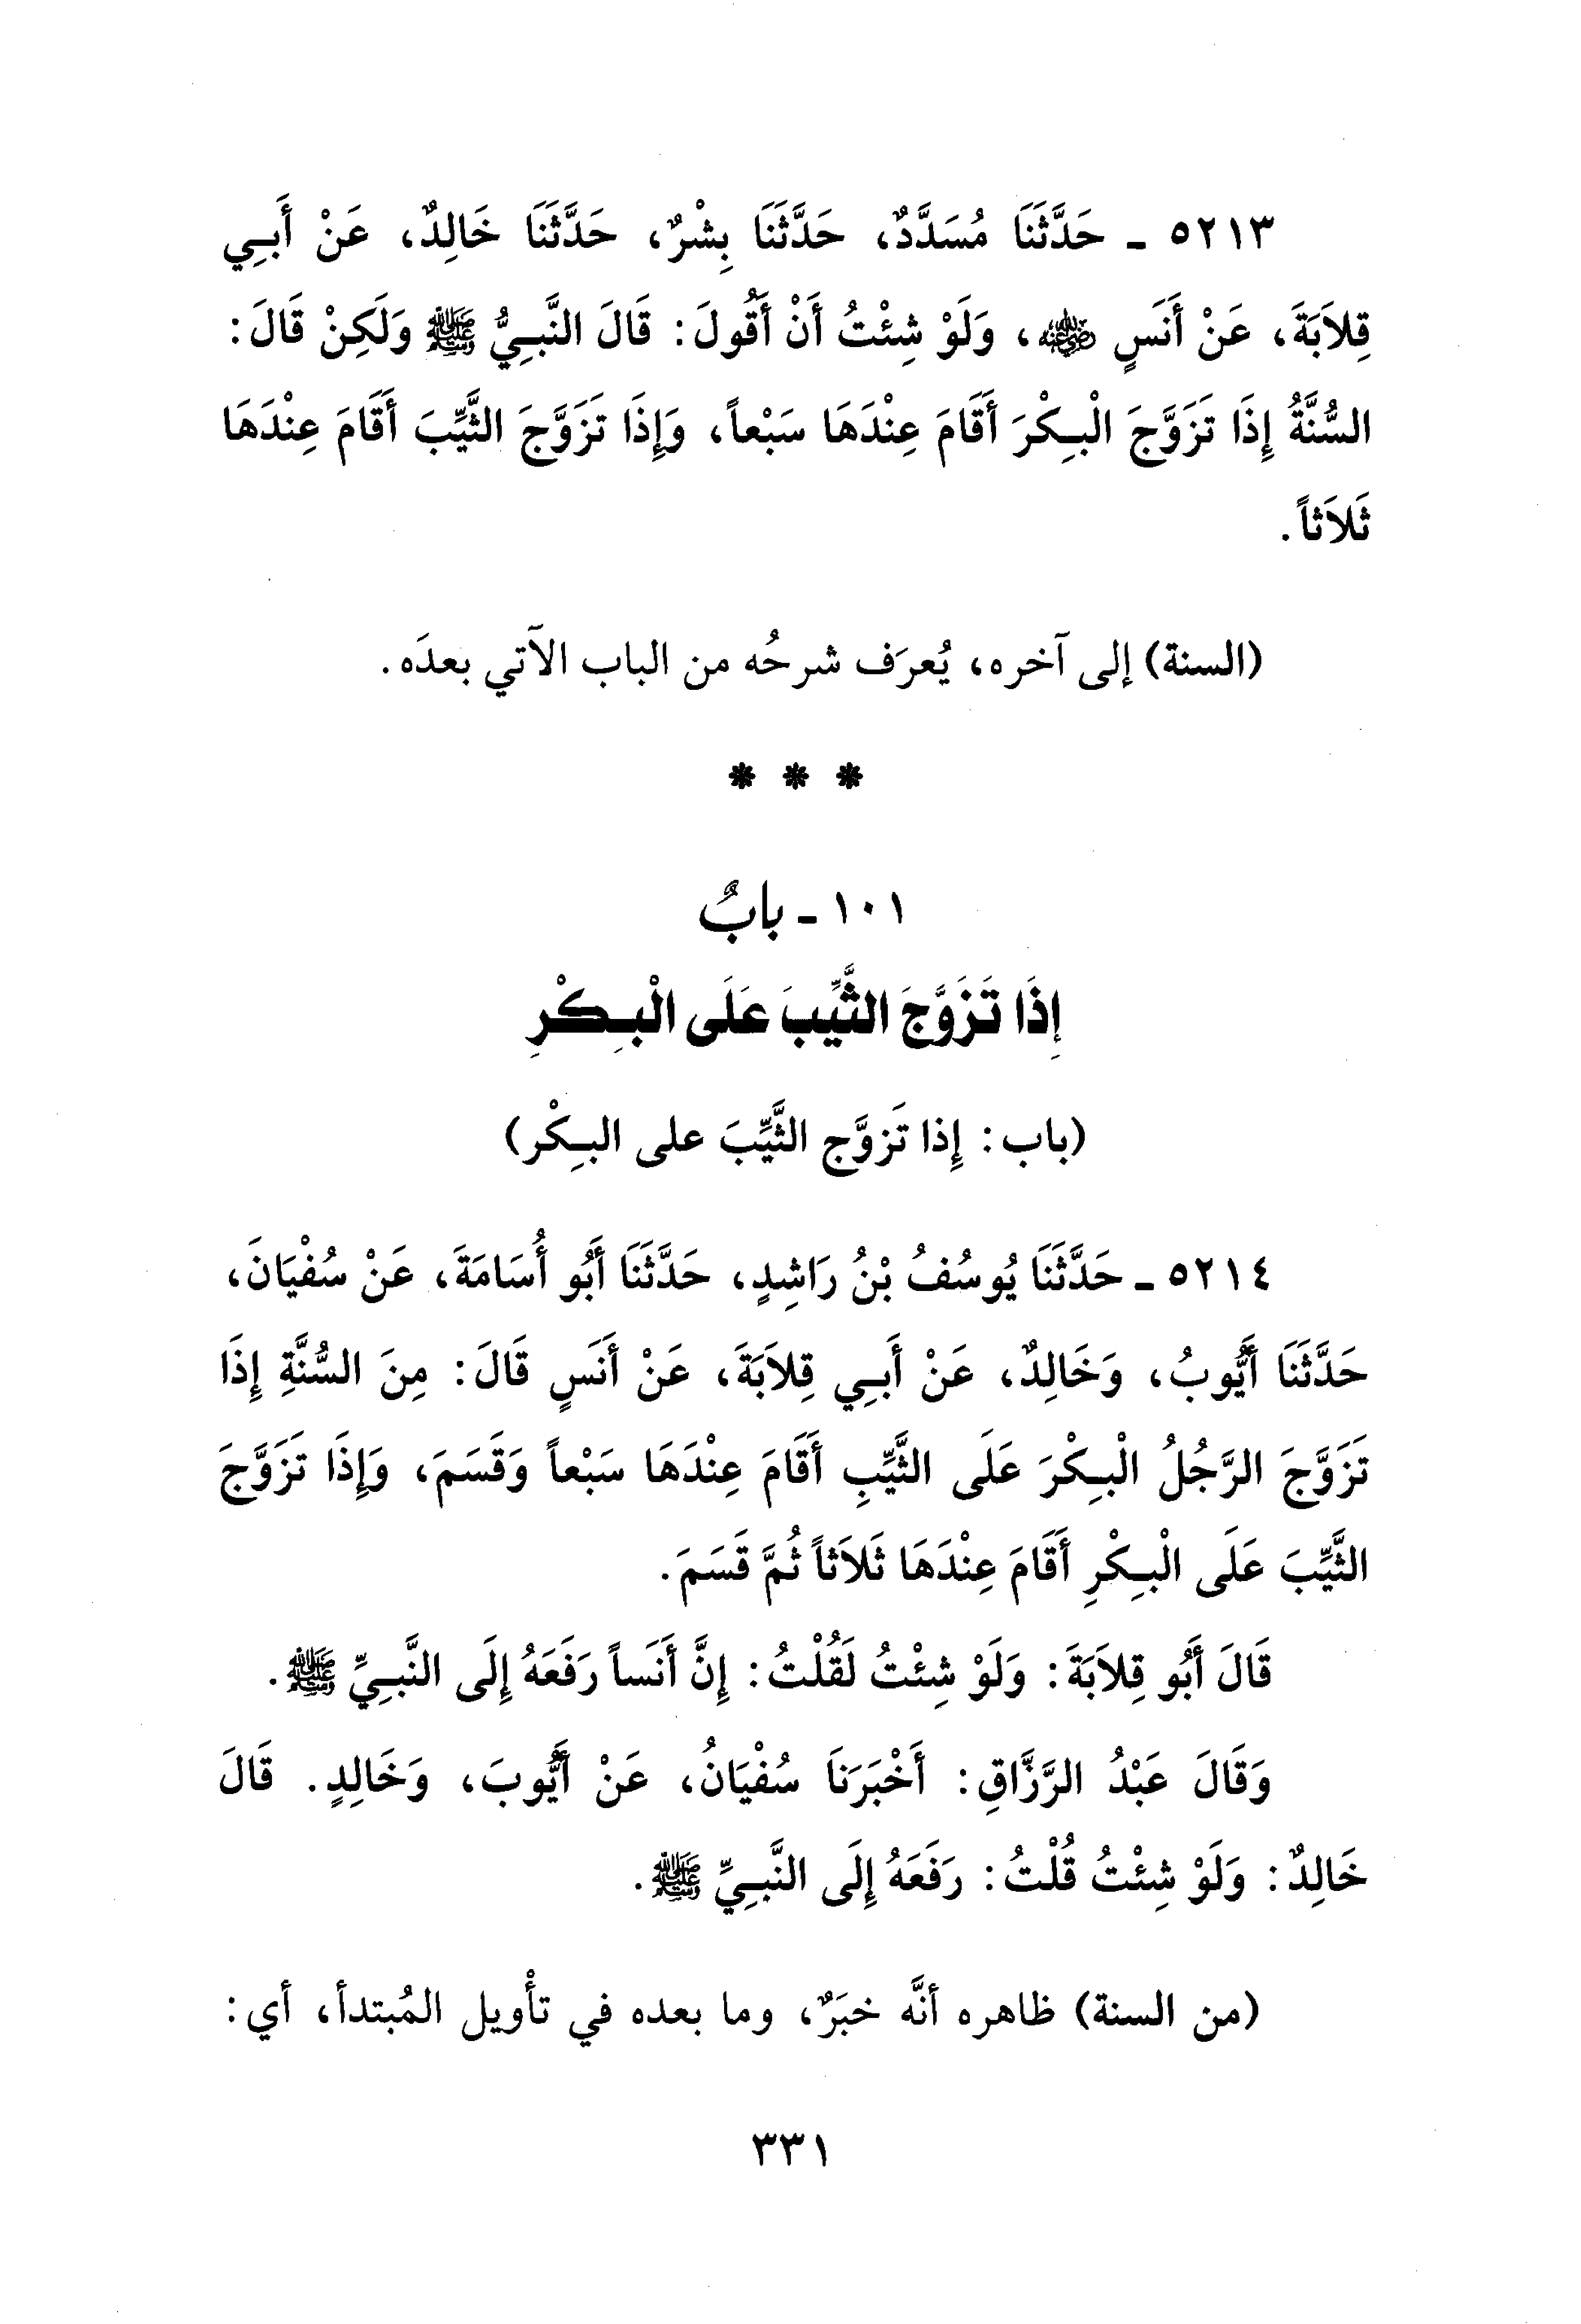 ٥٢١٣ ـ حَدَّثَنَا مُسَدَّدٌ، حَدَّثَنَا بِشْرٌ، حَدَّثَنَا خَالِدٌ، عَنْ أَبِي
قِلاَبَةَ، عَنْ أَنَسٍ ﵁، وَلَوْ شِئْتُ أَنْ أَقُولَ: قَالَ النَّبِيُّ ﷺ وَلَكِنْ قَالَ:
السُّنَّةُ إِذَا تَزَوَّجَ الْبِكْرَ أَقَامَ عِنْدَهَا سَبْعاً، وَإِذَا تَزَوَّجَ الثَّيِّبَ أَقَامَ عِنْدَهَا
ثَلاَثاً.
(السنة) إلى آخره، يُعرَف شرحُه من الباب الآتي بعدَه.
* * *
١٠١ ـ بابٌ
إِذَا تَزَوَّجَ الثَّيِّبَ عَلَى الْبِكْرِ
(باب: إِذا تَزوَّج الثَّيِّبَ على البِكْر)
٥٢١٤ ـ حَدَّثَنَا يُوسُفُ بْنُ رَاشِدٍ، حَدَّثَنَا أَبُو أُسَامَةَ، عَنْ سُفْيَانَ،
حَدَّثَنَا أَيُّوبُ، وَخَالِدٌ، عَنْ أَبِي قِلاَبَةَ، عَنْ أَنَسٍ قَالَ: مِنَ السُّنَّةِ إِذَا
تَزَوَّجَ الرَّجُلُ الْبِكْرَ عَلَى الثَّيِّبِ أَقَامَ عِنْدَهَا سَبْعاً وَقَسَمَ، وَإِذَا تَزَوَّجَ
الثَّيِّبَ عَلَى الْبِكْرِ أَقَامَ عِنْدَهَا ثَلاَثاً ثُمَّ قَسَمَ.
قَالَ أَبُو قِلاَبَةَ: وَلَوْ شِئْتُ لَقُلْتُ: إِنَّ أَنَساً رَفَعَهُ إِلَى النَّبِيِّ ﷺ.
وَقَالَ عَبْدُ الرَّزَّاقِ: أَخْبَرَنَا سُفْيَانُ، عَنْ أَيُّوبَ، وَخَالِدٍ. قَالَ
خَالِدٌ: وَلَوْ شِئْتُ قُلْتُ: رَفَعَهُ إِلَى النَّبِيِّ ﷺ.
(من السنة) ظاهره أنَّه خبَرٌ، وما بعده في تأْويل المُبتدأ، أي:
٣٣١